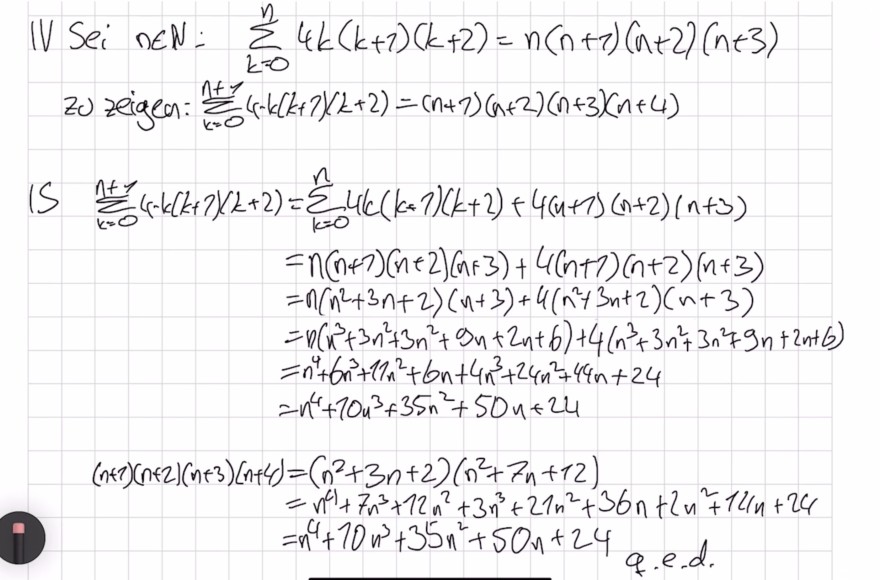 IV Sei n∈ℕ: ∑_{k=0}^{n} 4k(k+1)(k+2) = n(n+1)(n+2)(n+3)
zo zeigen: ∑_{k=0}^{n+1} 4·k(k+1)(k+2) = (n+1)(n+2)(n+3)(n+4)
IS ∑_{k=0}^{n+1} 4·k(k+1)(k+2) = ∑_{k=0}^{n} 4k(k+1)(k+2) + 4(n+1)(n+2)(n+3)
= n(n+1)(n+2)(n+3) + 4(n+1)(n+2)(n+3)
= n(n²+3n+2)(n+3) + 4(n²+3n+2)(n+3)
= n(n³+3n²+3n²+9n+2n+6) + 4(n³+3n²+3n²+9n+2n+6)
= n⁴+6n³+11n²+6n+4n³+24n²+44n+24
= n⁴+10n³+35n²+50n+24
(n+1)(n+2)(n+3)(n+4) = (n²+3n+2)(n²+7n+12)
= n⁴+7n³+12n²+3n³+21n²+36n+2n²+14n+24
= n⁴+10n³+35n²+50n+24
q.e.d.